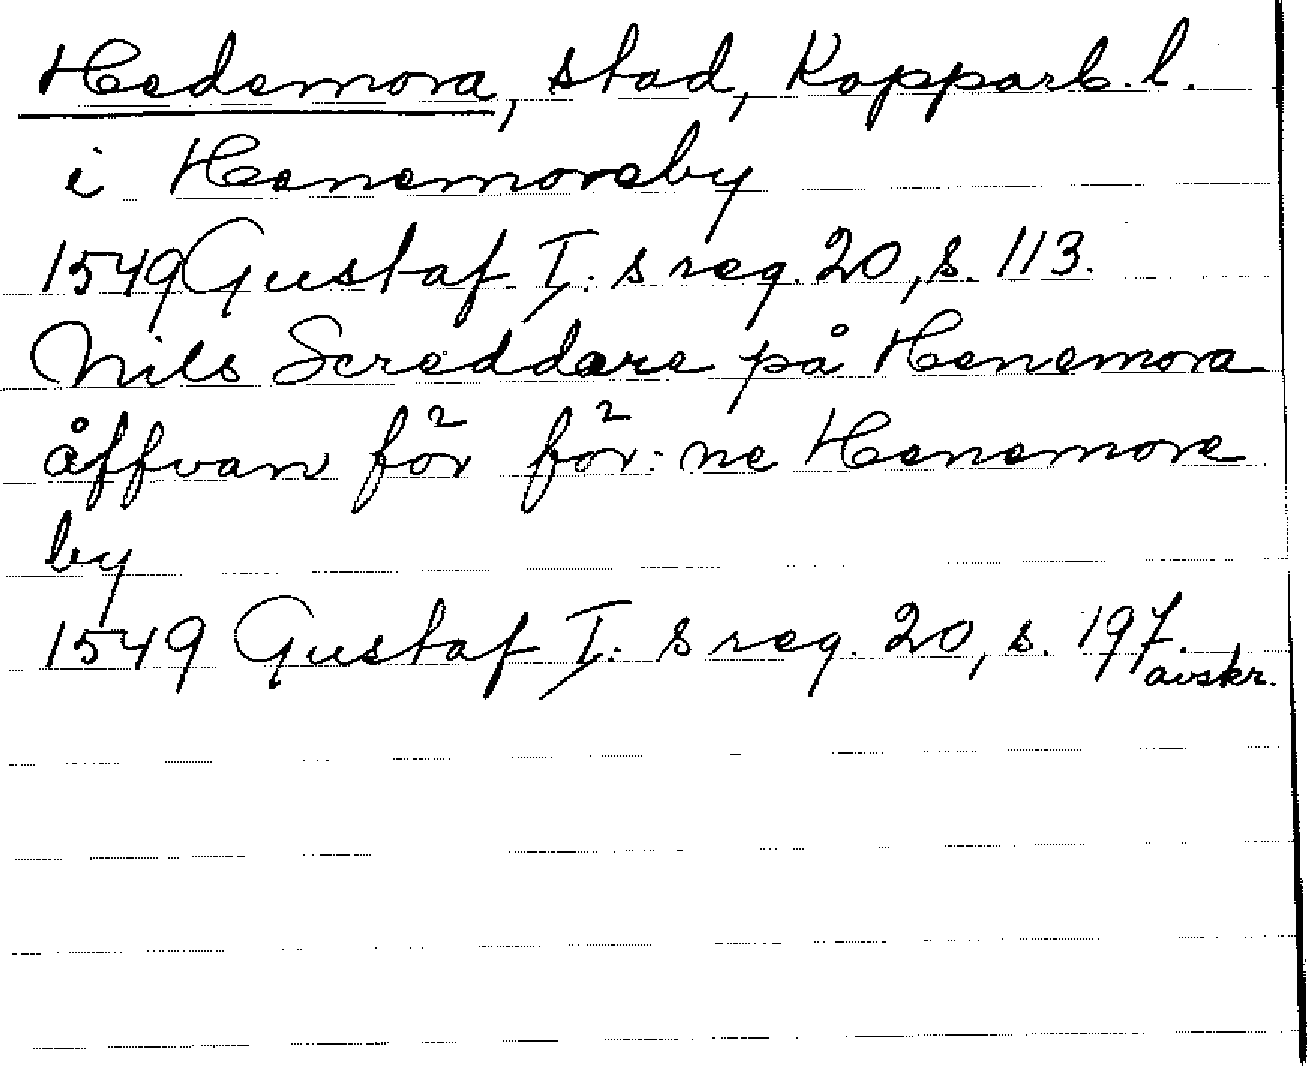 Hedemora, stad, Kopparb. l.
i Henemoraby
1549 Gustaf I: s reg. 20, s. 113.
Nils Screddare på Henemora
åffvan för för: ne Henemora
by
1549 Gustaf I: s reg. 20, s. 197.
avskr.